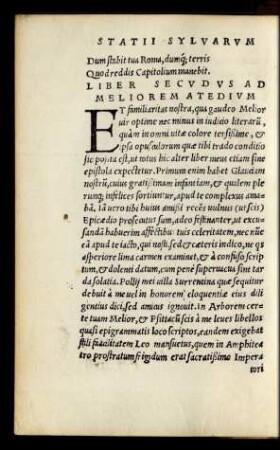 STATII SYLVARVM
Dum stabit tua Roma, dumq; terris
Quod reddis Capitolium manebit.
LIBER SECVDVS AD
MELIOREM ATEDIVM
ET familiaritas nostra, qua gaudeo Melior
uir optime nec minus in iudicio literarũ,
quàm in omni uitæ colore tersissime, &
ipsa opusculorum quæ tibi trado conditio
sic posita est, ut totus hic alter liber meus etiam sine
epistola expectetur. Primum enim habet Glauciam
nostrũ, cuius gratissimam infantiam, & quilem ple
runq; infelices sortiuntur, apud te complexus ama
bã. Iã uero tibi huius amissi recēs uulnus (ut scis)
Epicædio prosecutus sum, adeo festinanter, ut excu-
sandã habuerim affectib; tuis celeritatem, nec nũc
eã apud te iacto, qui nosti, sed & cæteris indico, ne qs
asperiore lima carmen examinet, & à confuso scrip
tum, & dolenti datum, cum penè superuacua sint tar
da solatia. Pollij mei uilla Surrentina quæ sequitur
debuit à me uel in honorem eloquentiæ eius dili
gentius dici, sed amicus ignouit. In Arborem cer
te tuam Melior, & Psittacũ scis à me leues libellos
quasi epigrammatis loco scriptos, eandem exigebat
stili facilitatem Leo mansuetus, quem in Amphitea
tro prostratum frigidum erat sacratissimo Impera
tori